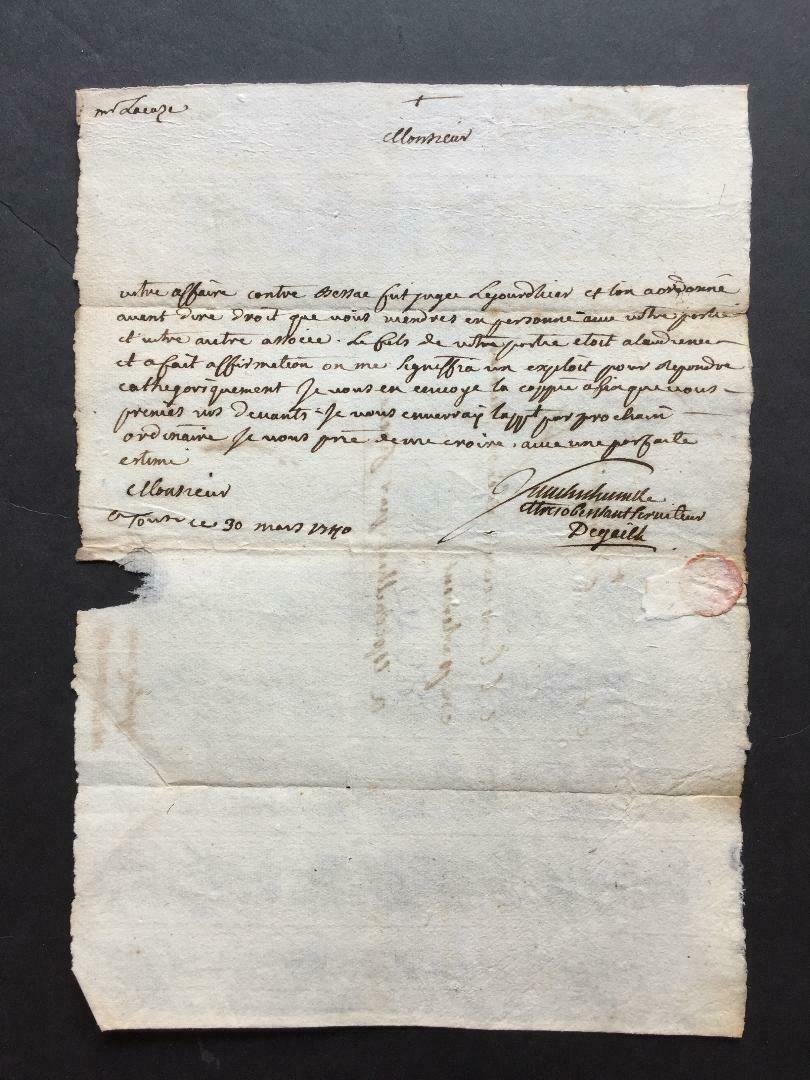 mr Lacaze
+
Monsieur
votre affaire contre Bessac fut jugee Lejourdhier et lon a ordonné
avant dire droit que vous viendres en personne avec votre partie
et votre autre associée. Le fils de votre partie etoit alaudience
et a fait affirmation on me signiffia un exploit pour Repondre
cathegoriquement Je vous en envoye la coppie afin que vous
preniés vos devants Je vous enverray lappt par prochain
ordinaire Je vous prie de me croire, avec une parfaite
estime
Monsieur
a Tou ce 30 mars 1740
Votre tres humble
et tres obeissant serviteur